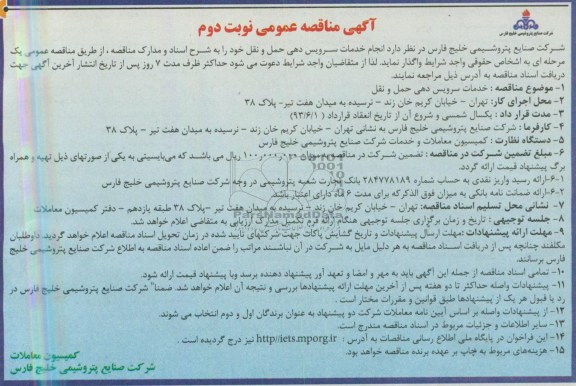 آگهی مناقصه عمومی نوبت دوم
شرکت صنایع پتروشیمی خلیج فارس
شرکت صنایع پتروشیمی خلیج فارس در نظر دارد انجام خدمات سرویس دهی حمل و نقل خود را به شرح اسناد و مدارک مناقصه ، از طریق مناقصه عمومی یک
مرحله ای به اشخاص حقوقی واجد شرایط واگذار نماید. لذا از متقاضیان واجد شرایط دعوت می شود حداکثر ظرف مدت ۷ روز پس از تاریخ انتشار آخرین آگهی جهت
دریافت اسناد مناقصه به آدرس ذیل مراجعه نمایند.
۱- موضوع مناقصه : خدمات سرویس دهی حمل و نقل
۲- محل اجرای کار: تهران – خیابان کریم خان زند – نرسیده به میدان هفت تیر- پلاک ۳۸
۳- مدت قرار داد : یکسال شمسی و شروع آن از تاریخ انعقاد قرارداد (۹۳/۶/۱ )
۴- کارفرما : شرکت صنایع پتروشیمی خلیج فارس به نشانی تهران – خیابان کریم خان زند – نرسیده به میدان هفت تیر – پلاک ۳۸
۵- دستگاه نظارت : کمیسیون معاملات و خدمات شرکت صنایع پتروشیمی خلیج فارس
۶- مبلغ تضمین شرکت در مناقصه : تضمین شرکت در مناقصه به میزان ریال می باشد که می‌بایستی به یکی از صورتهای ذیل تهیه و همراه
برگ پیشنهاد قیمت ارائه گردد.
۶-۱-ارائه رسید واریز نقدی به حساب شماره ۲۸۴۷۷۸۱۸۹ بانک تجارت شعبه پتروشیمی در وجه شرکت صنایع پتروشیمی خلیج فارس
۶-۲-ارائه ضمانت نامه بانکی به میزان فوق الذکر که برای مدت ۶ ماه دارای اعتبار باشد
۷- نشانی محل تسلیم اسناد مناقصه: تهران – خیابان کریم خان زند – نرسیده به میدان هفت تیر –پلاک ۳۸ طبقه یازدهم – دفتر کمیسیون معاملات
۸- جلسه توجیهی : تاریخ و زمان برگزاری جلسه توجیهی هنگام ارائه فرم تکمیل مدارک ارزیابی به متقاضی اعلام خواهد شد.
۹- مهلت ارائه پیشنهادات :مهلت ارسال پیشنهادات و تاریخ گشایش پاکات جهت شرکتهای تایید شده در زمان تحویل اسناد مناقصه اعلام خواهد گردید. داوطلبان
مکلفند چنانچه پس از دریافت اسناد مناقصه به هر دلیل مایل به شرکت در آن نباشند مراتب را ضمن اعاده اسناد مناقصه به اطلاع شرکت صنایع پتروشیمی خلیج
فارس برسانند.
۱۰- تمامی اسناد مناقصه از جمله این آگهی باید به مهر و امضا و تعهد آور پیشنهاد دهنده برسد وبا پیشنهاد قیمت ارائه شود.
۱۱- پیشنهادات واصله حداکثر تا دو هفته پس از آخرین مهلت ارائه پیشنهادها بررسی و نتیجه آن اعلام خواهد شد. ضمنا" شرکت صنایع پتروشیمی خلیج فارس در
رد یا قبول هر یک از پیشنهادها طبق قوانین و مقررات مختار است .
۱۲- از پیشنهادات واصله بر اساس آیین نامه معاملات شرکت دو پیشنهاد به عنوان برندگان اول و دوم انتخاب می شوند.
۱۳- سایر اطلاعات و جزئیات مربوط در اسناد مناقصه مندرج است.
۱۴- این فراخوان در پایگاه ملی اطلاع رسانی مناقصات به آدرس : http//iets.mporg.ir نیز درج گردیده است .
۱۵- هزینه‌های مربوط به چاپ بر عهده برنده مناقصه خواهد بود.
کمیسیون معاملات
شرکت صنایع پتروشیمی خلیج فارس